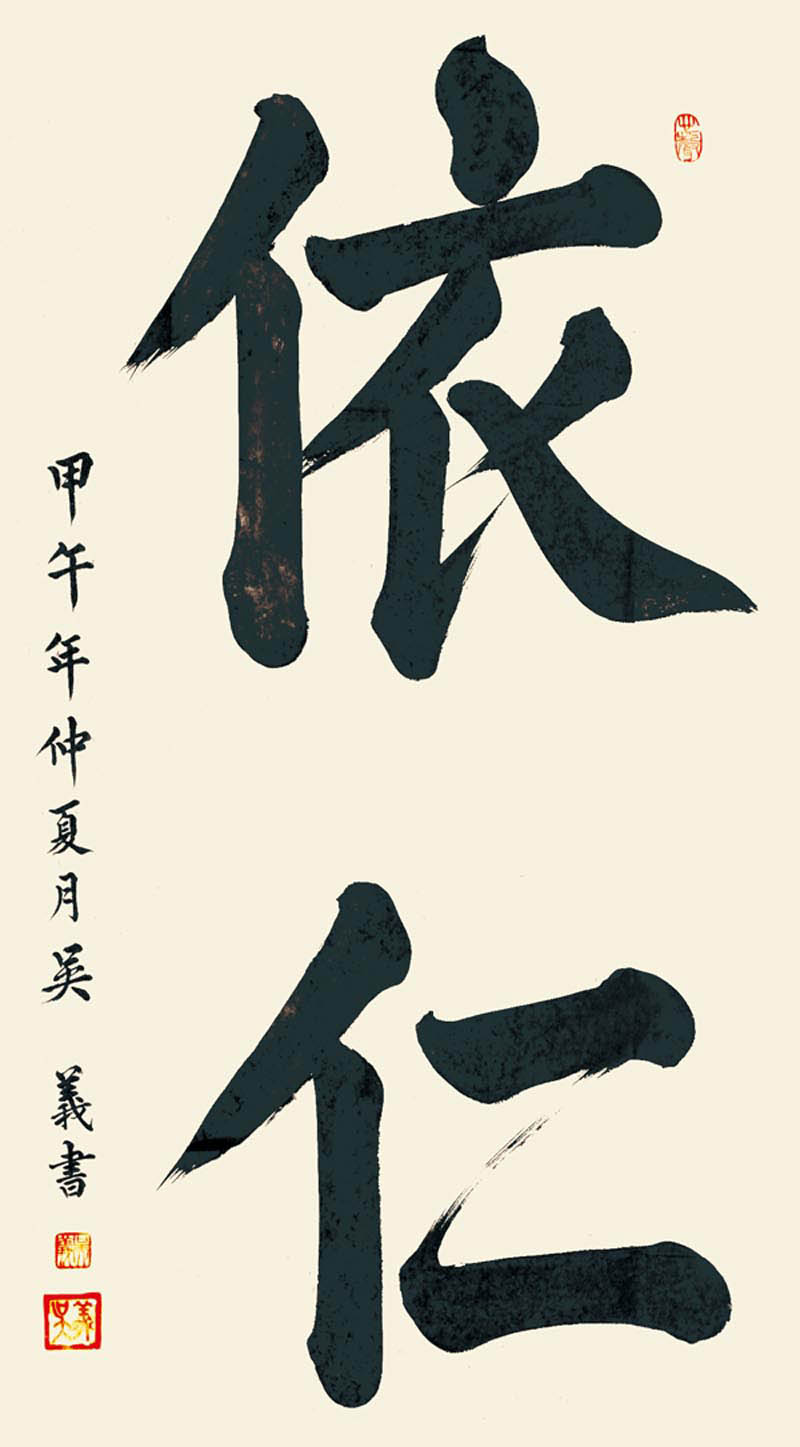 依仁
甲午年仲夏月吴 義書
吴義